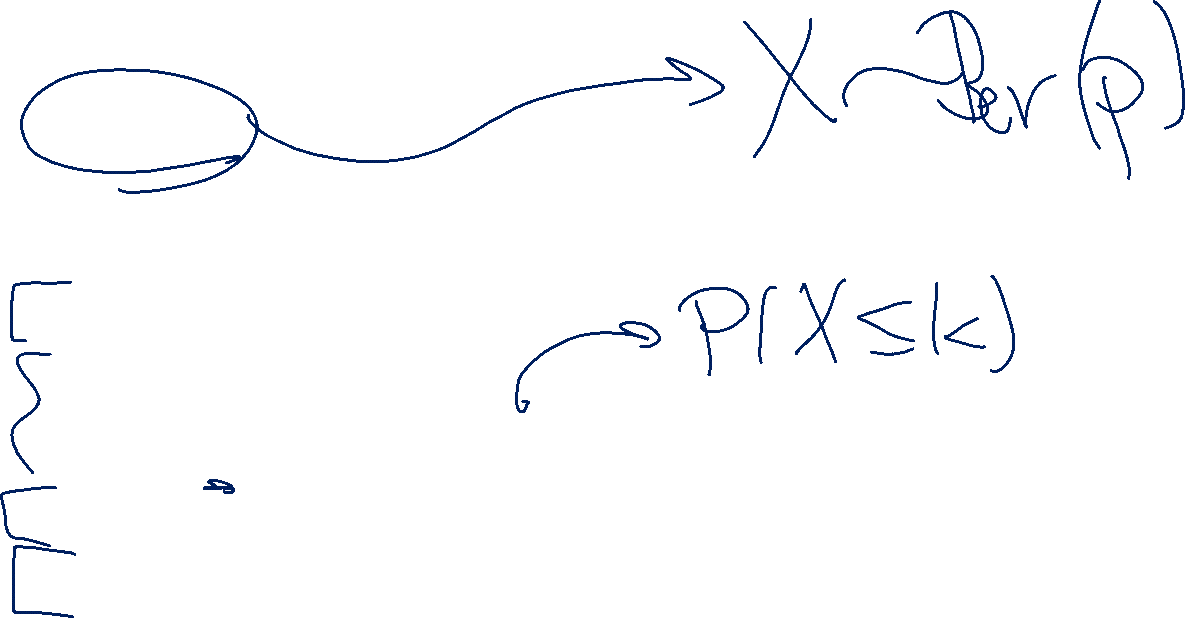 X ~ Ber(p)
P(X ≤ k)